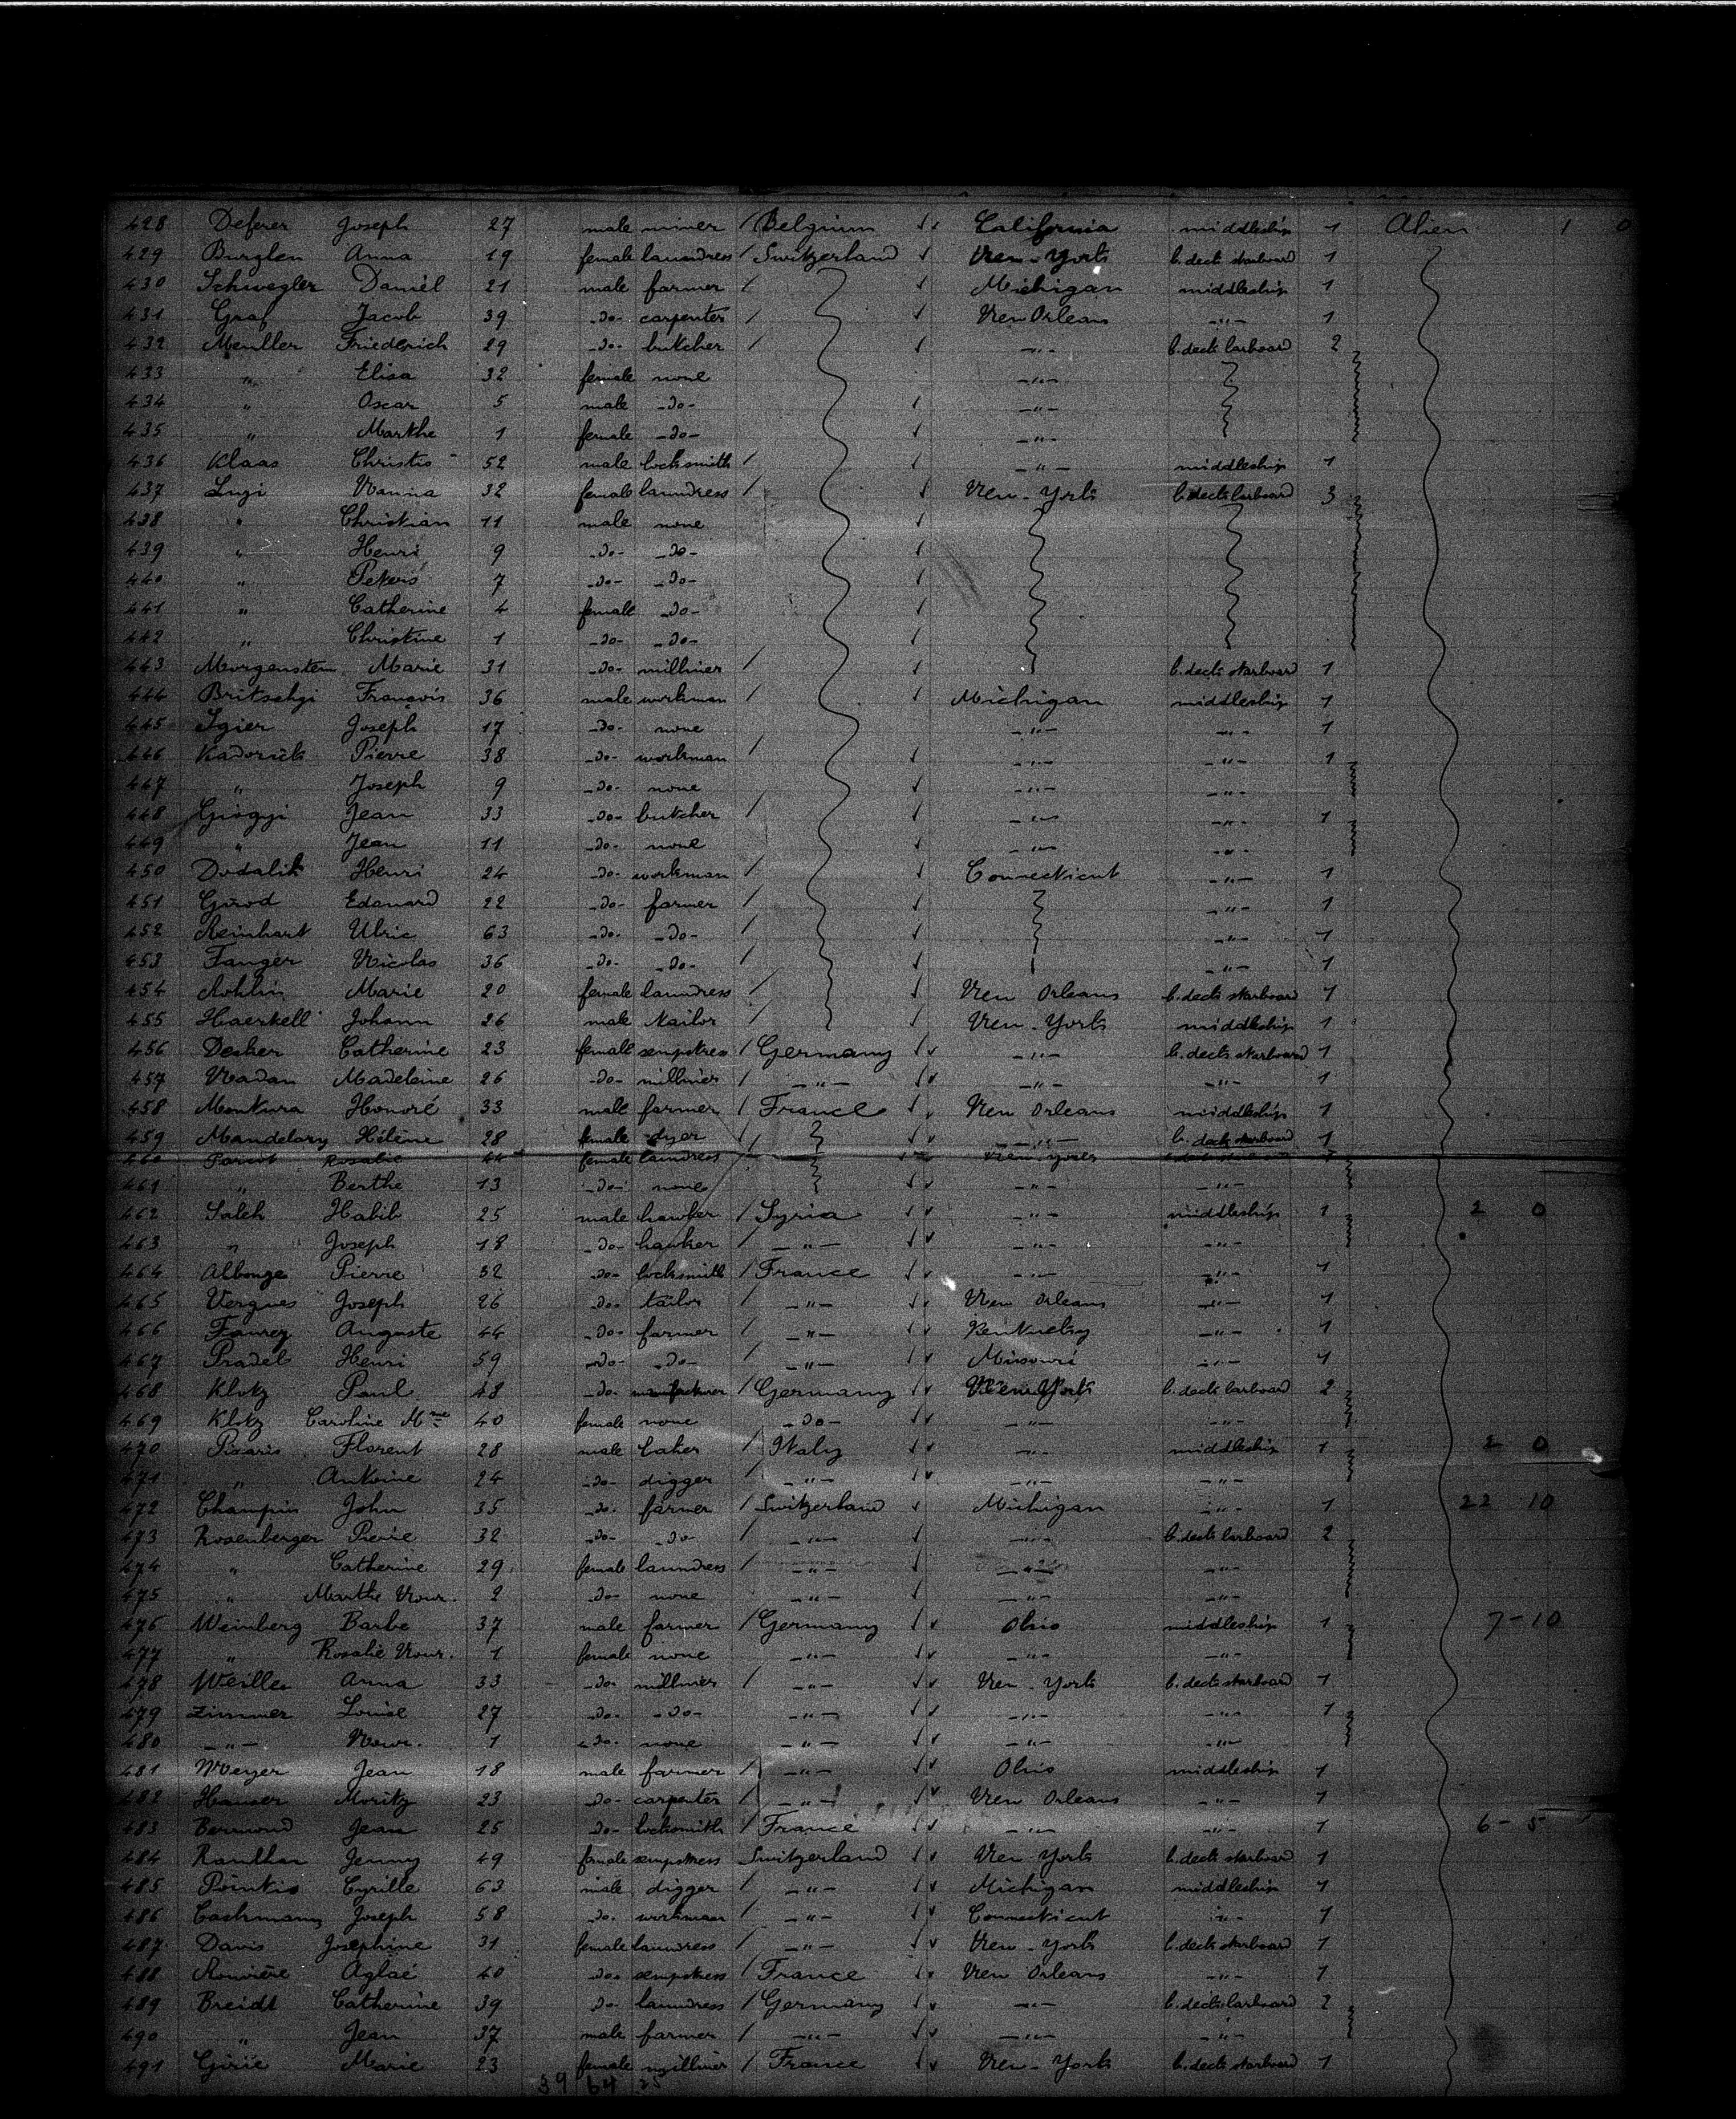 428 Deferer Joseph 27 male miner / Belgium California middleship 1 Alien 1 0
429 Burglen Anna 19 female laundress / Switzerland New-York b. deck starboard 1
430 Schwegler Daniel 21 male farmer / Michigan middleship 1
431 Graf Jacob 39 -do- carpenter / New Orleans -"- 1
432 Meuller Friederich 29 -do- butcher / -"- b. deck larboard 2
433 " Elisa 32 female none -"-
434 " Oscar 5 male -do- -"-
435 " Marthe 1 female -do- -"-
436 Klaas Christis 52 male locksmith / -"- middleship 1
437 Luzi Nanna 32 female laundress / New-York b. deck larboard 3
438 " Christian 11 male none
439 " Henri 9 -do- -do-
440 " 7 -do- -do-
441 " Catherine 4 female -do-
442 " Christine 1 -do- -do-
443 Morgenstern Marie 31 -do- milliner / b. deck starboard 1
444 Britschgi François 36 male workman / Michigan middleship 1
445 Joseph 17 -do- none -"- -"- 1
446 Kadorick Pierre 38 -do- workman / -"- -"- 1
447 " Joseph 9 -do- none -"- -"-
448 Jean 33 -do- butcher / -"- -"- 1
449 " Jean 11 -do- none -"- -"-
450 Dodalik Henri 24 -do- workman / Connecticut -"- 1
451 Girod Edouard 22 -do- farmer / -"- 1
452 Reinhart Ulric 63 -do- -do- / -"- 1
453 Fanger Nicolas 36 -do- -do- / -"- 1
454 Marie 20 female laundress / New Orleans b. deck starboard 1
455 Haerkell Johann 26 male tailor / New-York middleship 1
456 Desher Catherine 23 female sempstress / Germany -"- b. deck starboard 1
457 Nadan Madeleine 26 -do- milliner / -"- -"- -"- 1
458 Monkura Honoré 33 male farmer / France New Orleans middleship 1
459 Mandelary Hélène 28 female dyer / -"- b. deck starboard 1
460 Parisot Rosalie 44 female laundress New-York
461 " Berthe 13 -do- none -"- -"-
462 Saleh Habib 25 male hawker / Syria -"- middleship 1 2 0
463 " Joseph 18 -do- hawker / -"- -"- -"-
464 Albouze Pierre 32 -do- locksmith / France -"- -"- 1
465 Vergnes Joseph 26 -do- tailor / -"- New Orleans -"- 1
466 Faurez Auguste 44 -do- farmer / -"- Kentucky -"- 1
467 Pradel Henri 59 -do- -do- / -"- Missouri -"- 1
468 Klotz Paul 48 -do- / Germany New York b. deck larboard 2
469 Klotz Caroline Mme 40 female none -do- -"- -"-
470 Pisaris Florent 28 male baker / Italy -"- middleship 1 2 0
471 " Antoine 24 -do- digger / -"- -"- -"-
472 Champin John 35 -do- farmer / Switzerland Michigan -"- 1 22 10
473 Rosenberger Pierre 32 -do- -do- / -"- -"- b. deck larboard 2
474 " Catherine 29 female laundress / -"- -"- -"-
475 " Marthe Nour. 2 -do- none -"- -"- -"-
476 Weinberg Barbe 37 male farmer / Germany Ohio middleship 1 7-10
477 " Rosalie Nour. 1 female none -"- -"- -"-
478 Weiller Anna 33 -do- milliner / -"- New-York b. deck starboard 1
479 Zimmer Louise 27 -do- -do- -"- -"- -"- 1
480 -"- Nour. 1 -do- none -"- -"- -"-
481 Meyer Jean 18 male farmer / -"- Ohio middleship 1
482 Hauser Moritz 23 -do- carpenter / -"- New Orleans -"- 1
483 Bermond Jean 25 -do- locksmith / France -"- -"- 1 6-5
484 Ranthar Jenny 49 female sempstress Switzerland New York b. deck starboard 1
485 Pointis Cyrille 63 male digger / -"- Michigan middleship 1
486 Cashmann Joseph 58 -do- workman / -"- Connecticut -"- 1
487 Davis Josephine 31 female laundress / -"- New-York b. deck starboard 1
488 Rouvière Aglaé 40 -do- sempstress / France New Orleans -"- 1
489 Breidt Catherine 39 -do- laundress / Germany -"- b. deck larboard 2
490 " Jean 37 male farmer / -"- -"- -"-
491 Girié Marie 23 female milliner / France New-York b. deck starboard 1
39 64 25